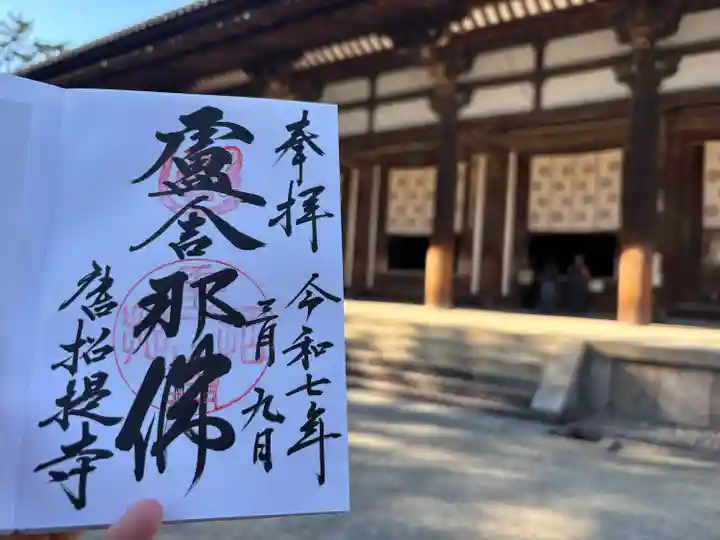 奉拝
令和七年
三月九日
盧舎那佛
唐招提寺